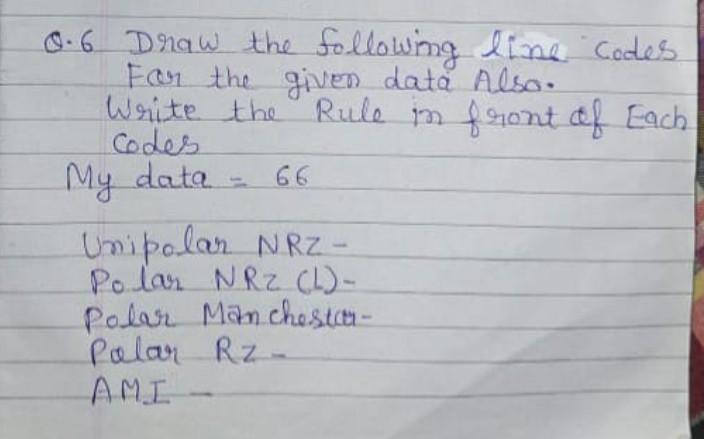 Q.6 Draw the following line codes
For the given data Also.
Write the Rule in front of Each
Codes
My data = 66
Unipolar NRZ -
Polar NRZ (L)-
Polar Manchester-
Polar RZ -
AMI -